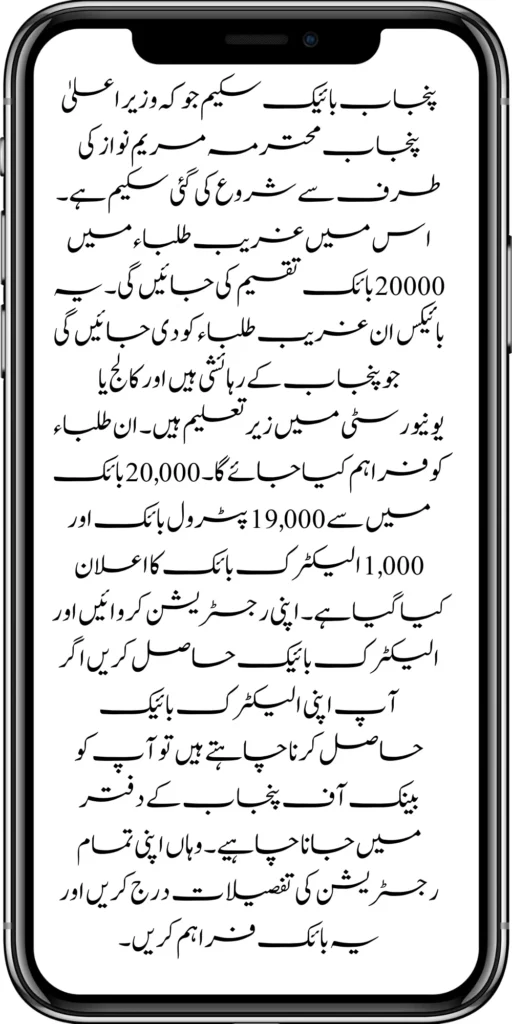 پنجاب بائیک سکیم جو کہ وزیر اعلیٰ
پنجاب محترمہ مریم نواز کی
طرف سے شروع کی گئی سکیم ہے۔
اس میں غریب طلباء میں
20000 بائک تقسیم کی جائیں گی۔ یہ
بائیکس ان غریب طلباء کو دی جائیں گی
جو پنجاب کے رہائشی ہیں اور کالج یا
یونیورسٹی میں زیر تعلیم ہیں۔ ان طلباء
کو فراہم کیا جائے گا۔ 20,000 بائک
میں سے 19,000 پٹرول بائک اور
1,000 الیکٹرک بائک کا اعلان
کیا گیا ہے۔ اپنی رجسٹریشن کروائیں اور
الیکٹرک بائیک حاصل کریں اگر
آپ اپنی الیکٹرک بائیک
حاصل کرنا چاہتے ہیں تو آپ کو
بینک آف پنجاب کے دفتر
میں جانا چاہیے۔ وہاں اپنی تمام
رجسٹریشن کی تفصیلات درج کریں اور
یہ بائک فراہم کریں۔